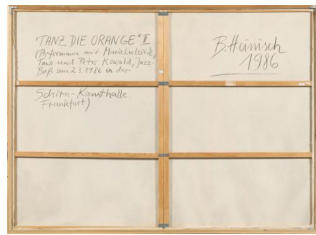 "TANZ DIE ORANGE" II
(Performance mit
Tanz und Peter Kowald, Jazz-
Baß am 2.3.1986 in der
Schirn-Kunsthalle
Frankfurt)
B. Heinisch
1986